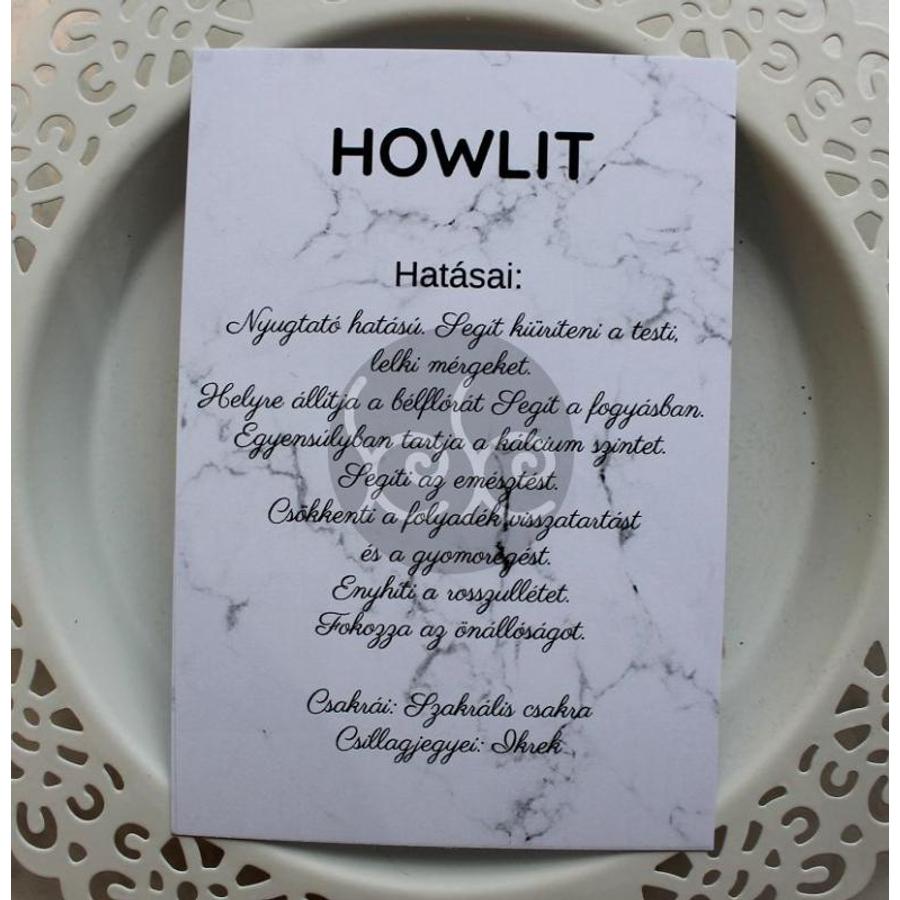 HOWLIT
Hatásai:
Nyugtató hatású. Segít kiüríteni a testi,
lelki mérgeket.
Helyre állítja a bélflórát Segít a fogyásban.
Egyensúlyban tartja a kálcium szintet.
Segíti az emésztést.
Csökkenti a folyadék visszatartást
és a gyomorégést.
Enyhíti a rosszullétet.
Fokozza az önállóságot.
Csakrái: Szakrális csakra
Csillagjegyei: Ikrek